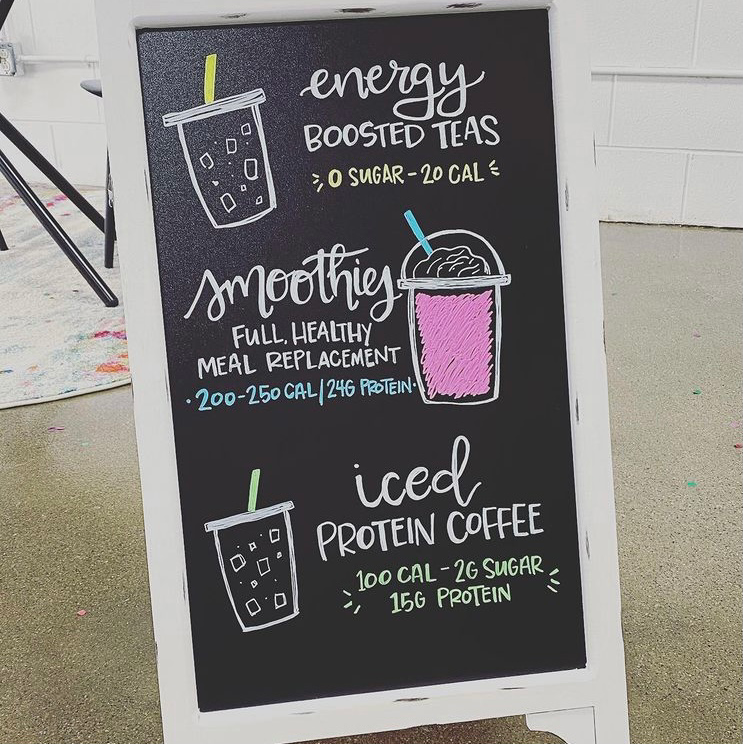 energy
BOOSTED TEAS
0 SUGAR - 20 CAL
smoothies
FULL, HEALTHY
MEAL REPLACEMENT
· 200-250 CAL/24G PROTEIN ·
iced
PROTEIN COFFEE
100 CAL - 2G SUGAR
15G PROTEIN